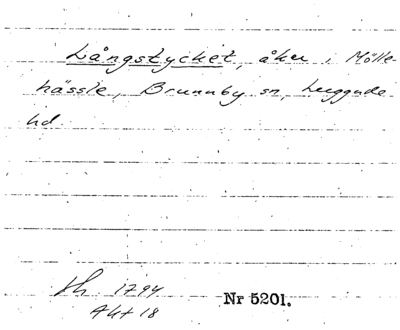 Långstycket, åker i Mölle-
hässle, Brunnby sn, Luggude
hd.
Sh. 1794
Akt 18
Nr 5201.